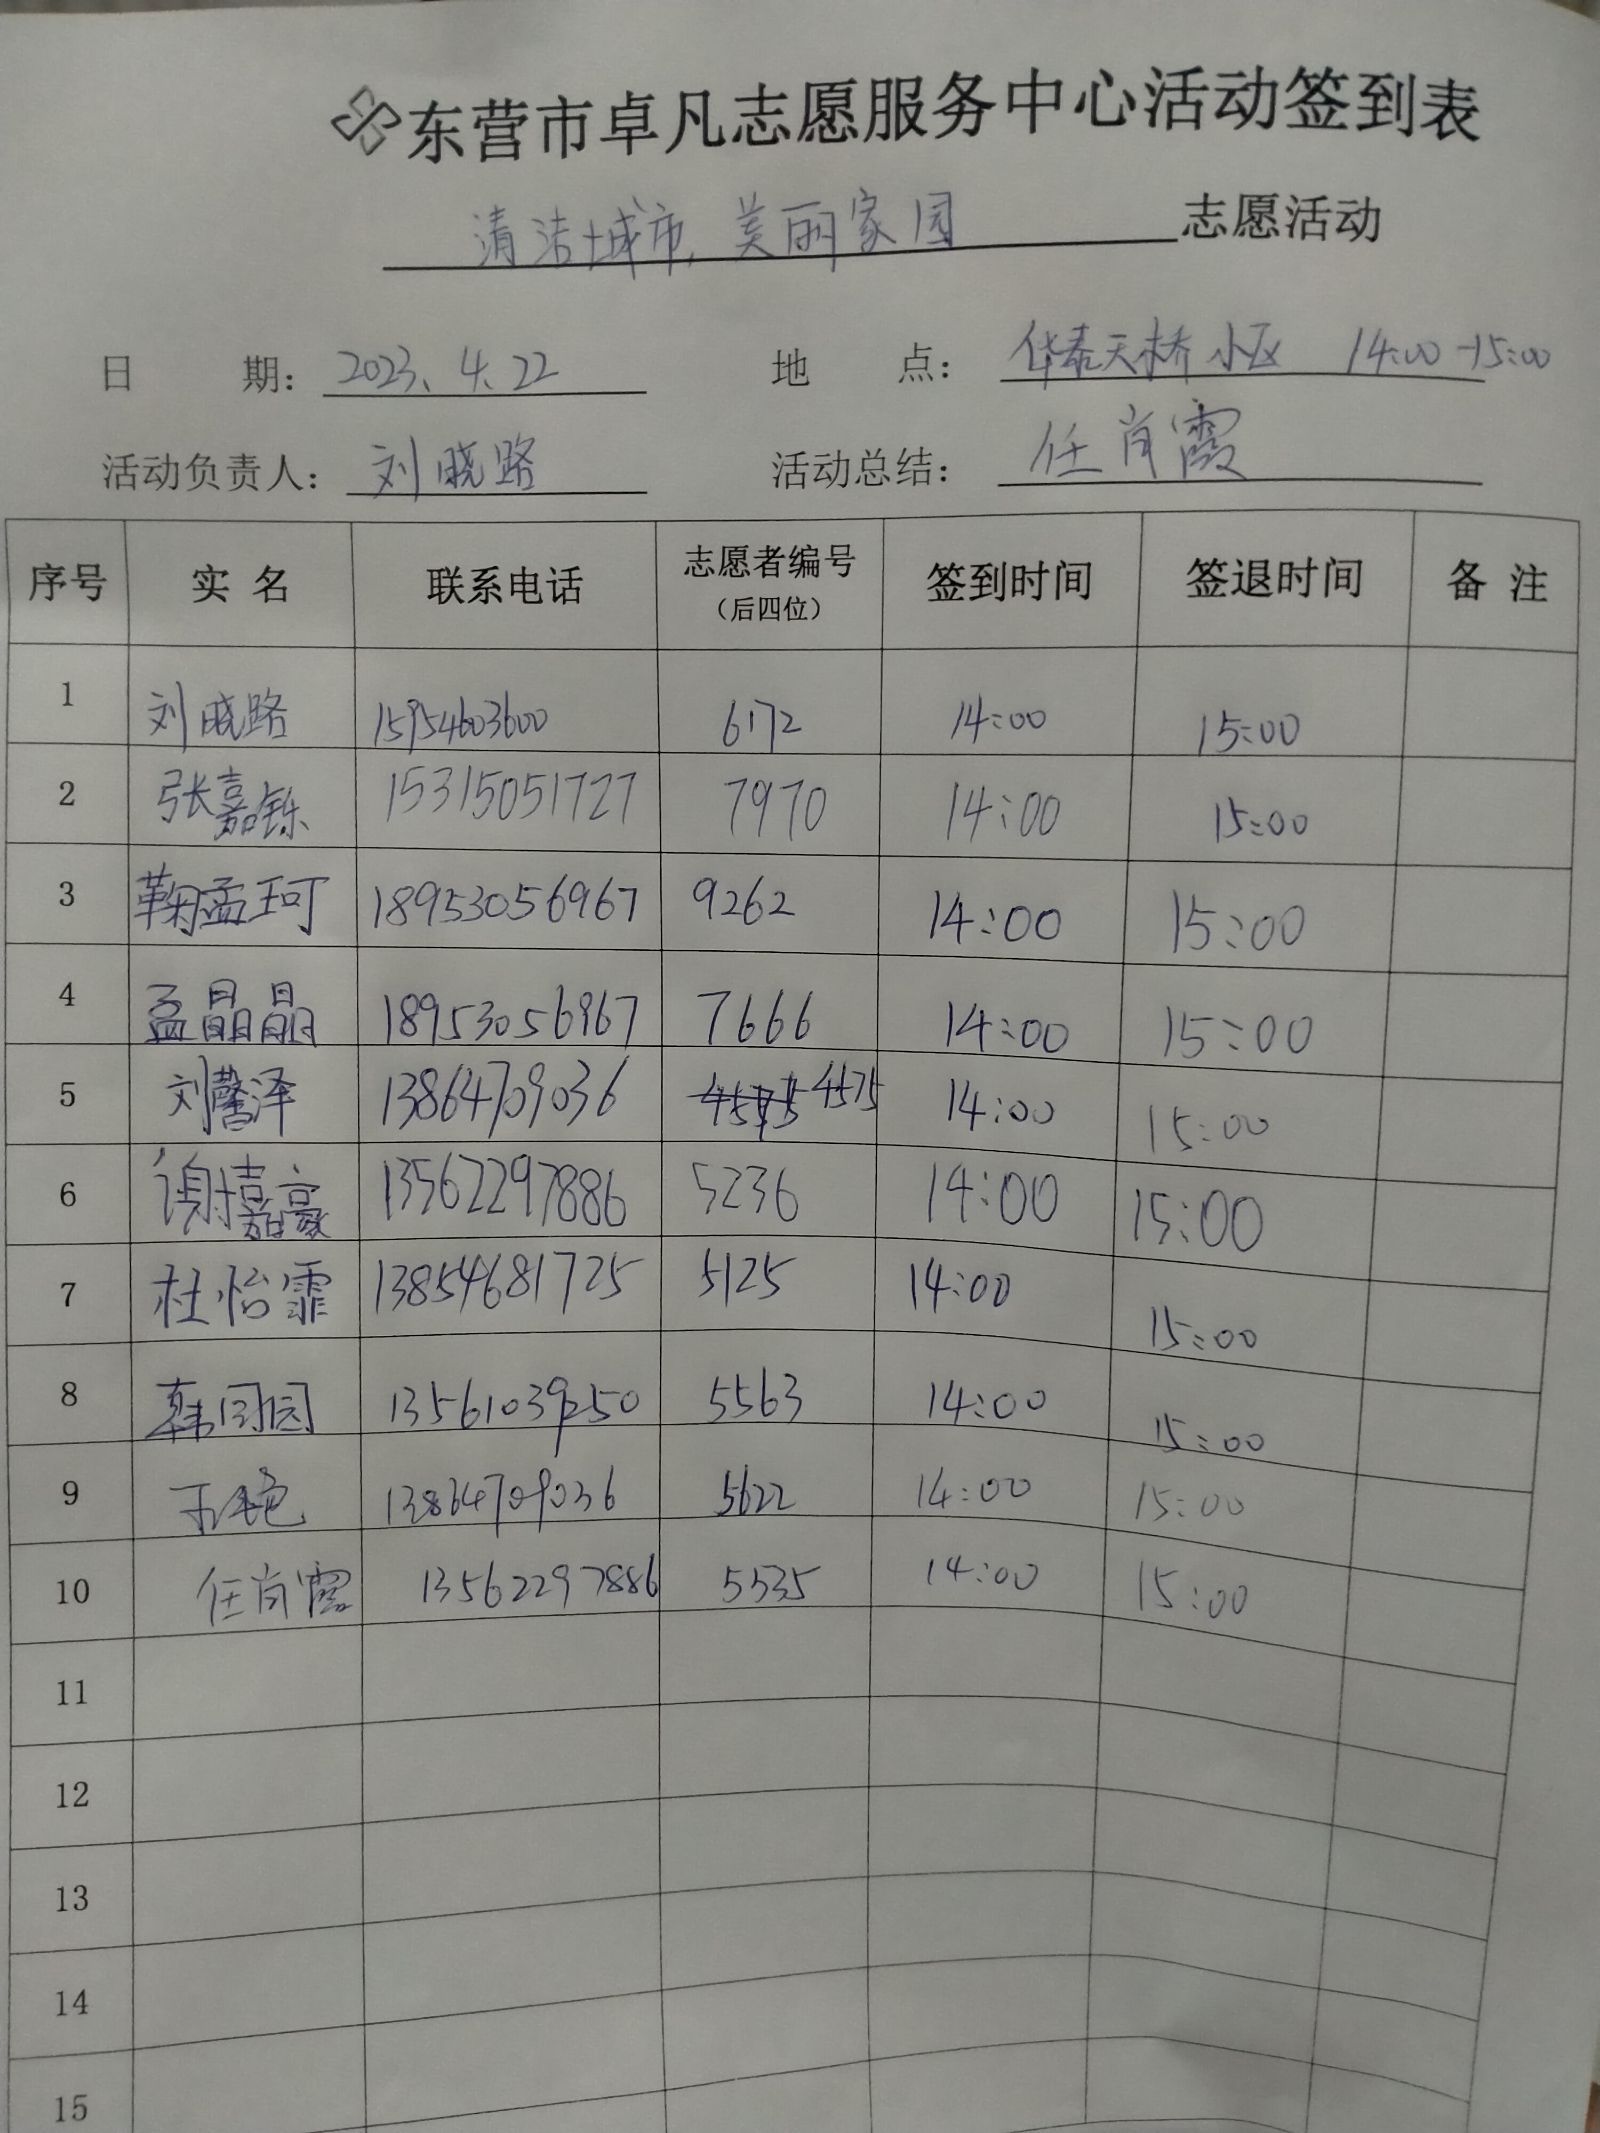 东营市卓凡志愿服务中心活动签到表
清洁城市,美丽家园 志愿活动
日 期: 2023、4、22 地 点: 华泰天桥小区 14:00-15:00
活动负责人: 刘晓路 活动总结: 任肖霞
序号 实名 联系电话 志愿者编号 签到时间 签退时间 备注
(后四位)
1 刘晓路 15954603600 6172 14:00 15:00
2 张嘉铄 15315051727 7970 14:00 15:00
3 鞠孟珂 18953056967 9262 14:00 15:00
4 孟晶晶 18953056967 7666 14:00 15:00
5 刘馨泽 13864709036 4575 14:00 15:00
6 谢嘉豪 13562297886 5236 14:00 15:00
7 杜怡霏 13854681725 5125 14:00 15:00
8 韩园园 13561039250 5563 14:00 15:00
9 13864709036 5622 14:00 15:00
10 任肖霞 13562297886 5535 14:00 15:00
11
12
13
14
15